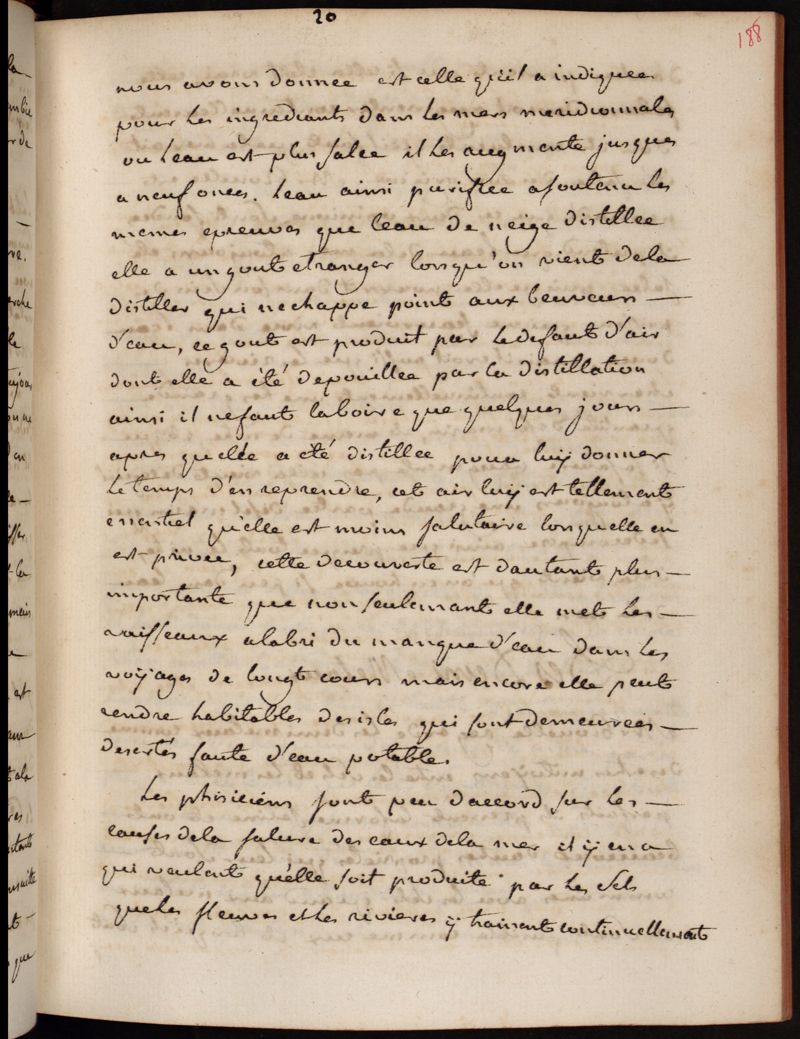 20
188
nous avons donnee est celle qu'il a indiquee
pour les ingrediants dans les mers meridionnales
ou leau est plus salee il les augmente jusques
a neuf onces. leau ainsi purifiee a soutenu les
memes epreuves que leau de neige distillee
elle a un gout etranger lorsqu'on vient de la
distiller qui nechappe point aux beuveurs —
d'eau, ce gout est produit par le defaut d'air
dont elle a été depouillee par la distillation
ainsi il ne faut la boire que quelques jours —
apres quelle a été distillee pour luy donner
le temps d'en reprendre, cet air luy est tellement
essentiel qu'elle est moins salutaire lorsquelle en
est privee, cette decouverte est dautant plus —
importante que non seulemant elle met les —
vaisseaux a labri du manque d'eau dans les
voyages de longt cours mais encore elle peut
rendre habitables des isles qui sont demeurees —
desertés faute d'eau potable.
Les phisiciens sont peu daccord sur les —
causes de la salure des eaux de la mer il y en a
qui veulent qu'elle soit produite par les sels
que les fleuves et les rivieres y trainent continuellement